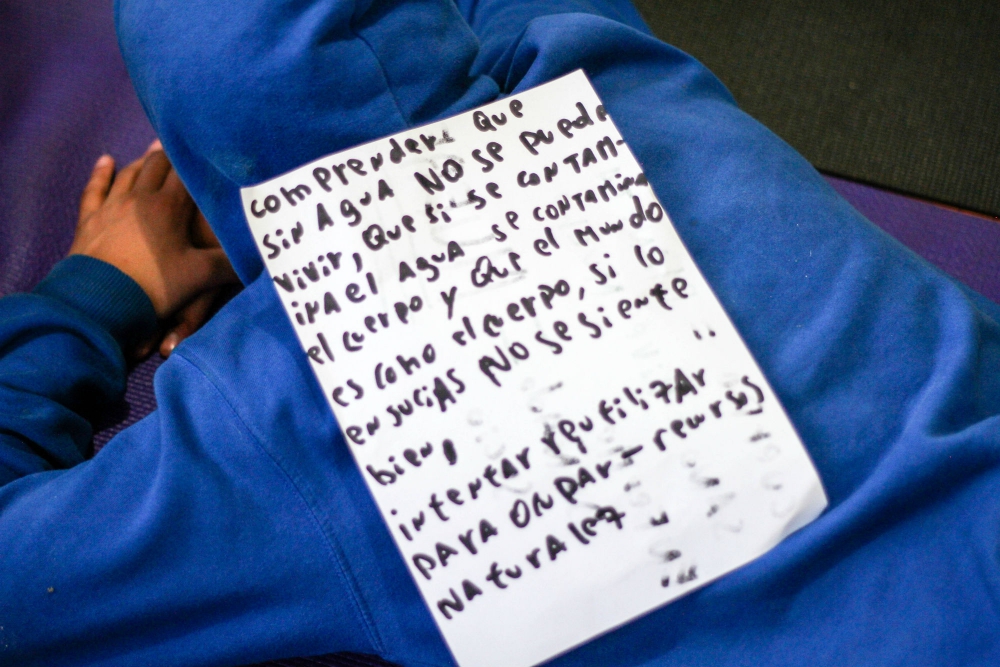 comprender que
sin Agua NO se puede
vivir, Que si se conTAM-
inA el AguA se conTAmina
el cuerpo y que el Mundo
es como el cuerpo, si lo
ensuciAs NO se siente
bien,
intentar reutilizAr
pArA
recursos
nAturAles